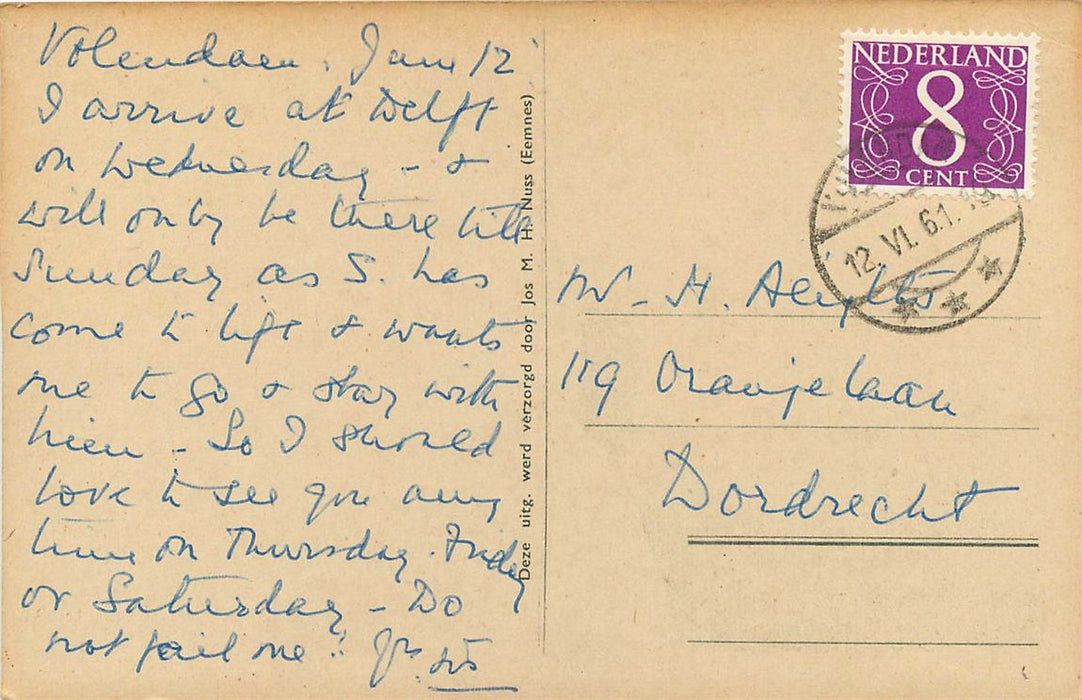 Volendam, June 12
I arrive at Delft
on Wednesday - &
will only be there till
Sunday as S. has
come to life & wants
me to go & stay with
him - So I should
love to see you any
time on Thursday. Friday
or Saturday - Do
not fail me!
Deze uitg. werd verzorgd door Jos M. H. Nuss (Eemnes)
NEDERLAND
8
CENT
12. VI. 61. 19
H.
119 Oranjelaan
Dordrecht